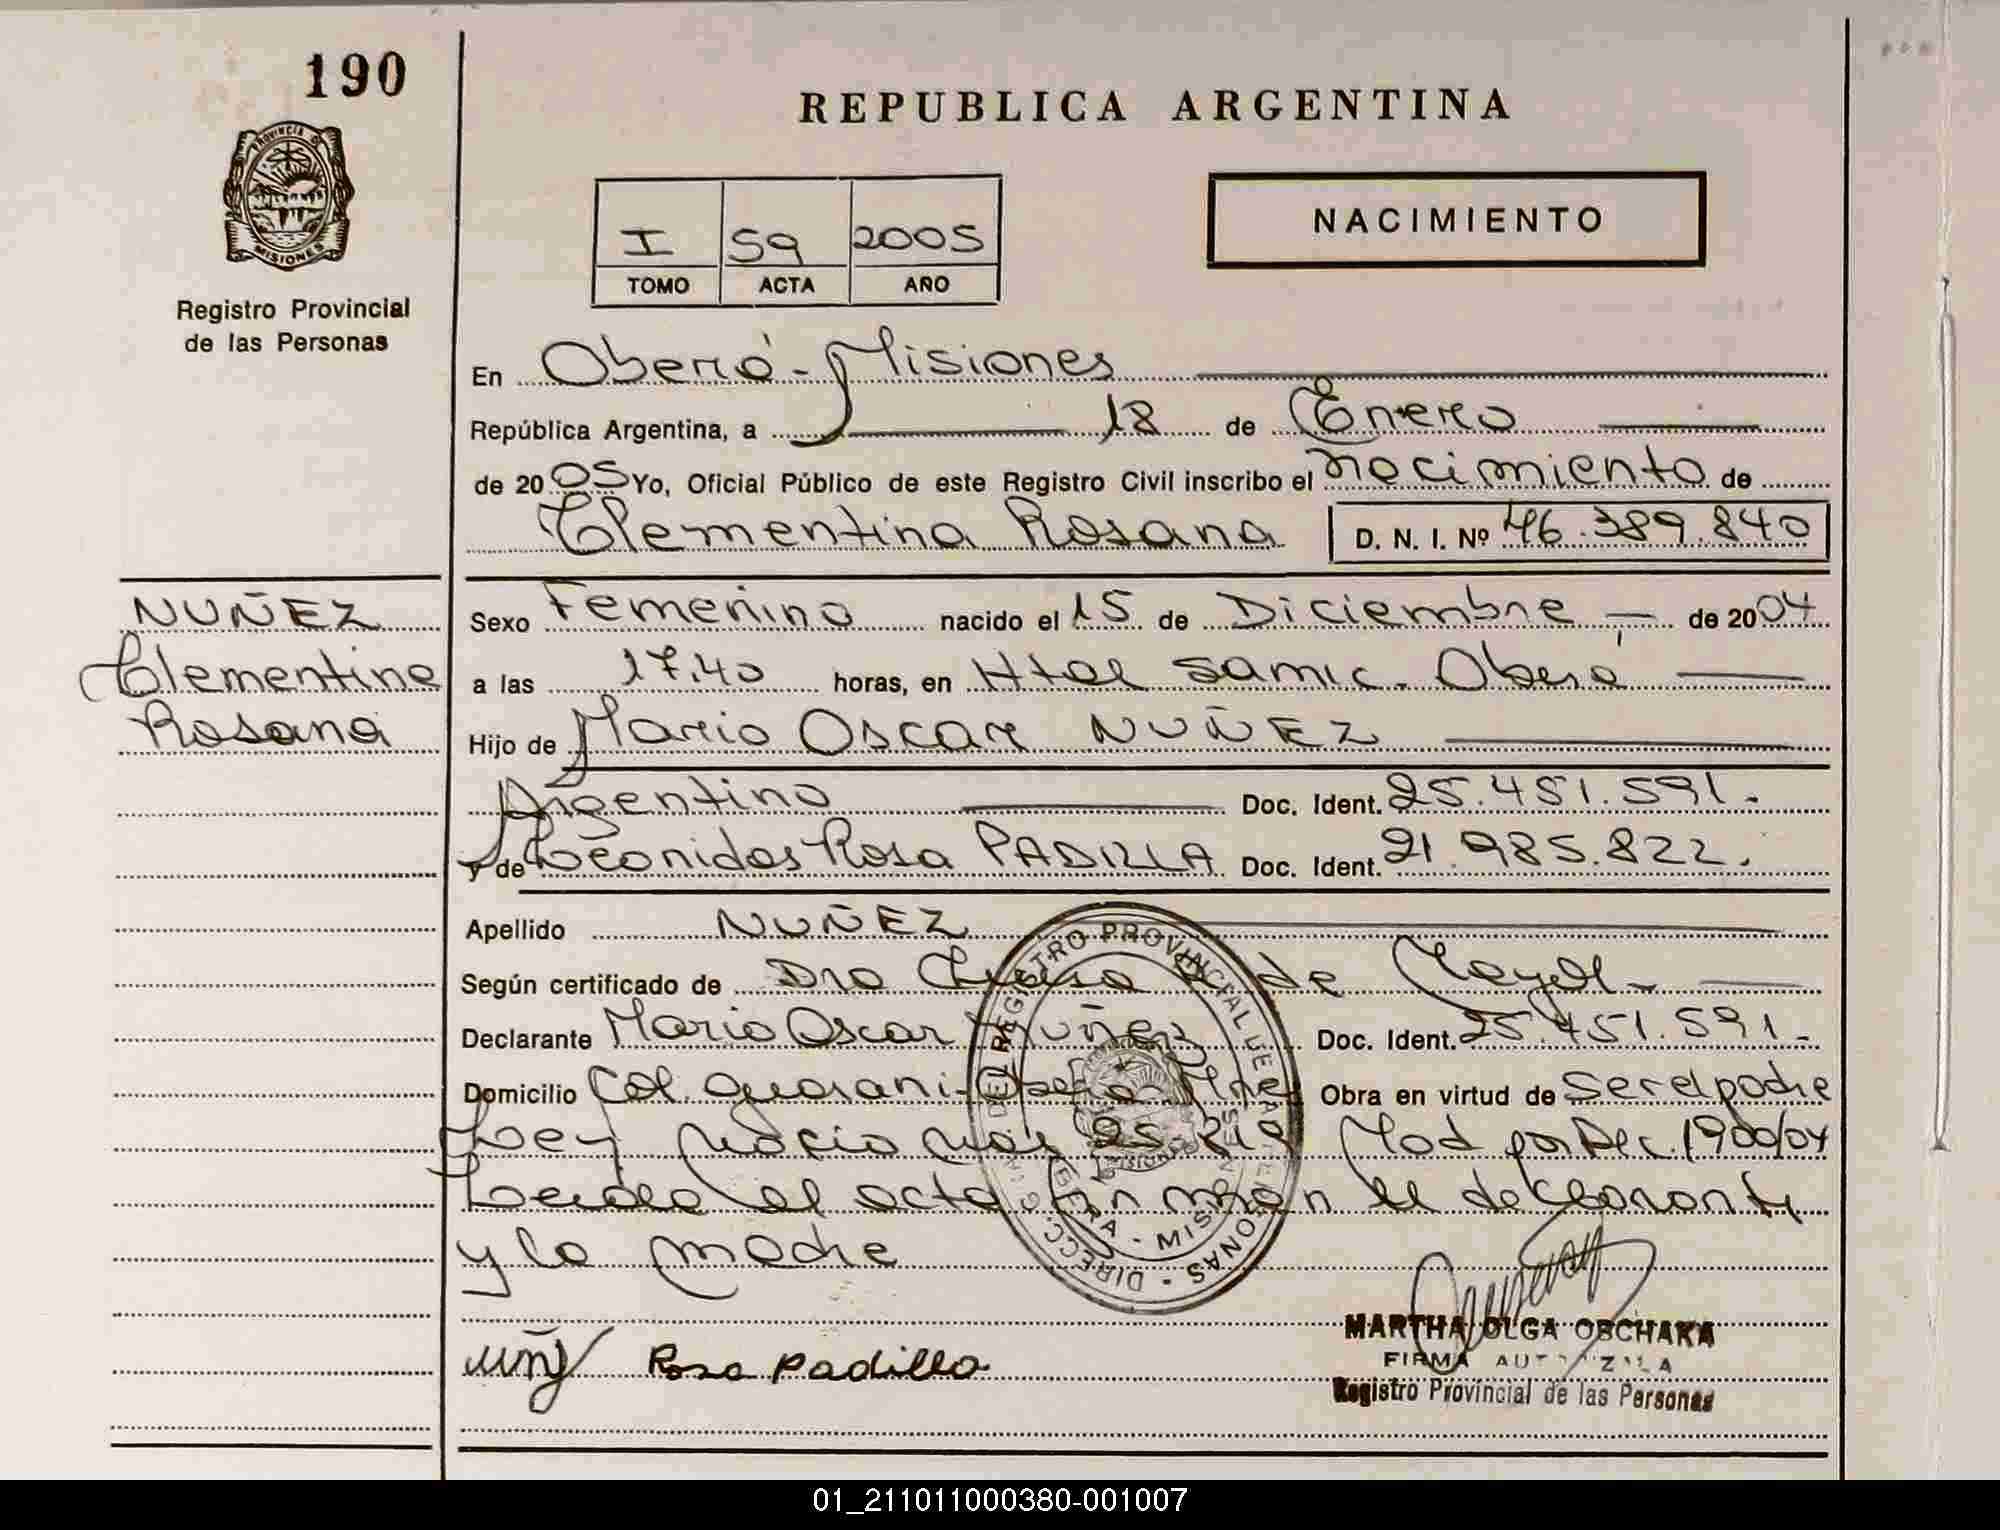 190
REPUBLICA ARGENTINA
PROVINCIA D
MISIONES
Registro Provincial
de las Personas
NACIMIENTO
I 59 2005
TOMO ACTA AÑO
En Oberá - Misiones
República Argentina, a 18 de Enero
de 2005 Yo, Oficial Público de este Registro Civil inscribo el nacimiento de
Clementina Rosana D. N. I. Nº 46.389.840
NUÑEZ
Clementina
Rosana
Sexo Femenino nacido el 15 de Diciembre de 2004
a las 17.40 horas, en Htal Samic. Oberá
Hijo de Mario Oscar NUÑEZ
Argentino Doc. Ident. 25.451.591.
y de Leonidas Rosa PADILLA Doc. Ident. 21.985.822.
Apellido NUÑEZ
Según certificado de Dra de
Declarante Mario Oscar Nuñez Doc. Ident. 25.451.591.-
Domicilio Col. Guarani - Oberá Mnes Obra en virtud de Ser el padre
Ley Nacional Mod por Dec. 1900/04
Leida el acta firman el declarante
y la madre
DIRECC. GRAL. DEL REGISTRO PROVINCIAL DE LAS PERSONAS
MISIONES
Rosa Padilla
MARTHA OLGA OBCHAKA
FIRMA AUTORIZADA
Registro Provincial de las Personas
01_211011000380-001007